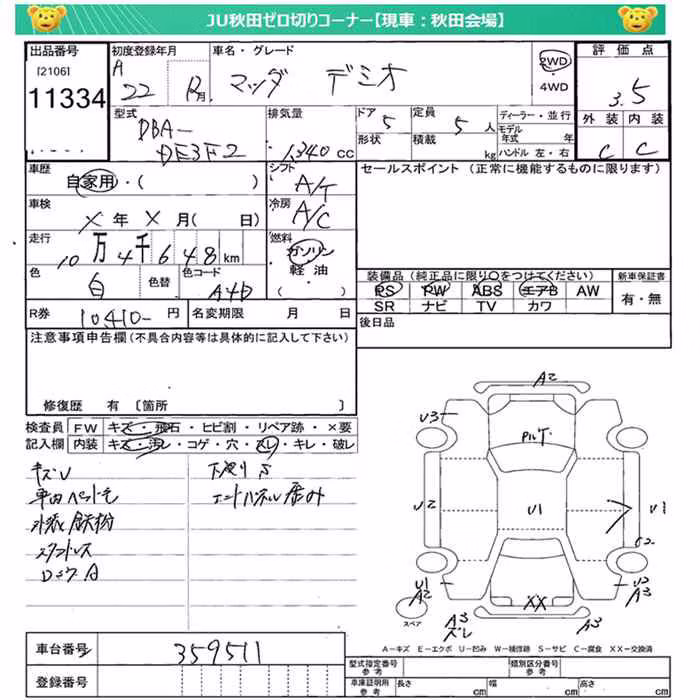 JU秋田ゼロ切りコーナー【現車：秋田会場】
出品番号 初度登録年月 車名・グレード 評価点
[2106] 11334 A 22年 12月 マツダ デミオ 2WD ・4WD 3.5
型式 DBA-DE3FS 排気量 1,340 cc ドア 5 形状 定員 5人 積載 kg ディーラー・並行 モデル年式 年 ハンドル 左・右 外装 内装 C C
車歴 自家用・( ) シフト A/T セールスポイント (正常に機能するものに限ります)
車検 X年X月( 日) 冷房 A/C
走行 10万4千648km 燃料 ガソリン 軽油 ( )
色 白 色替 色コード A4D 装備品(純正品に限り○をつけてください) 新車保証書
PS PW ABS エアB AW 有・無
SR ナビ TV カワ
R券 10,410- 円 名変期限 月 日 後日品
注意事項申告欄(不具合内容等は具体的に記入して下さい)
修復歴 有 〔箇所 〕
検査員 FW キズ・飛石・ヒビ割・リペア跡・×要
記入欄 内装 キズ・汚レ・コゲ・穴・スレ・キレ・破レ
キズU
車内ペット毛
外装鉄粉
スタットレス
ロックA
A2
U3
PルT
U2 U1 U1
U1 A2
XX
A3
A3 ズレ A3
スペア
A－キズ E－エクボ U－凹み W－補修跡 S－サビ C－腐食 XX－交換済
車台番号 359511
登録番号
型式指定番号 参考 類別区分番号 参考
車庫証明用 参考 長さ cm 幅 cm 高さ cm